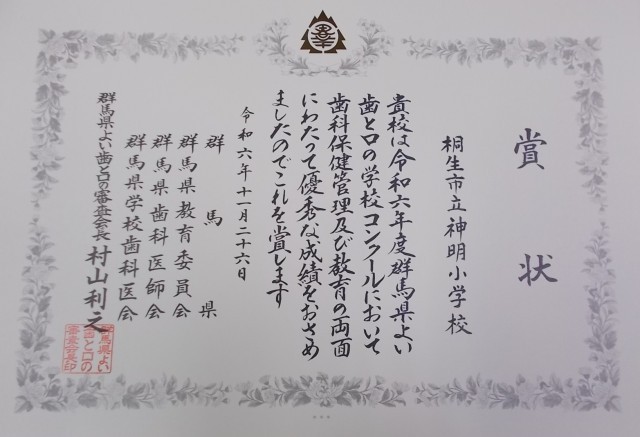 賞状
桐生市立神明小学校
貴校は令和六年度群馬県よい
歯と口の学校コンクールにおいて
歯科保健管理及び教育の両面
にわたって優秀な成績をおさめ
ましたのでこれを賞します
令和六年十一月二十六日
群馬県
群馬県教育委員会
群馬県歯科医師会
群馬県学校歯科医会
群馬県よい歯と口の審査会長 村山利之
群馬県よい
歯と口の
審査会長印